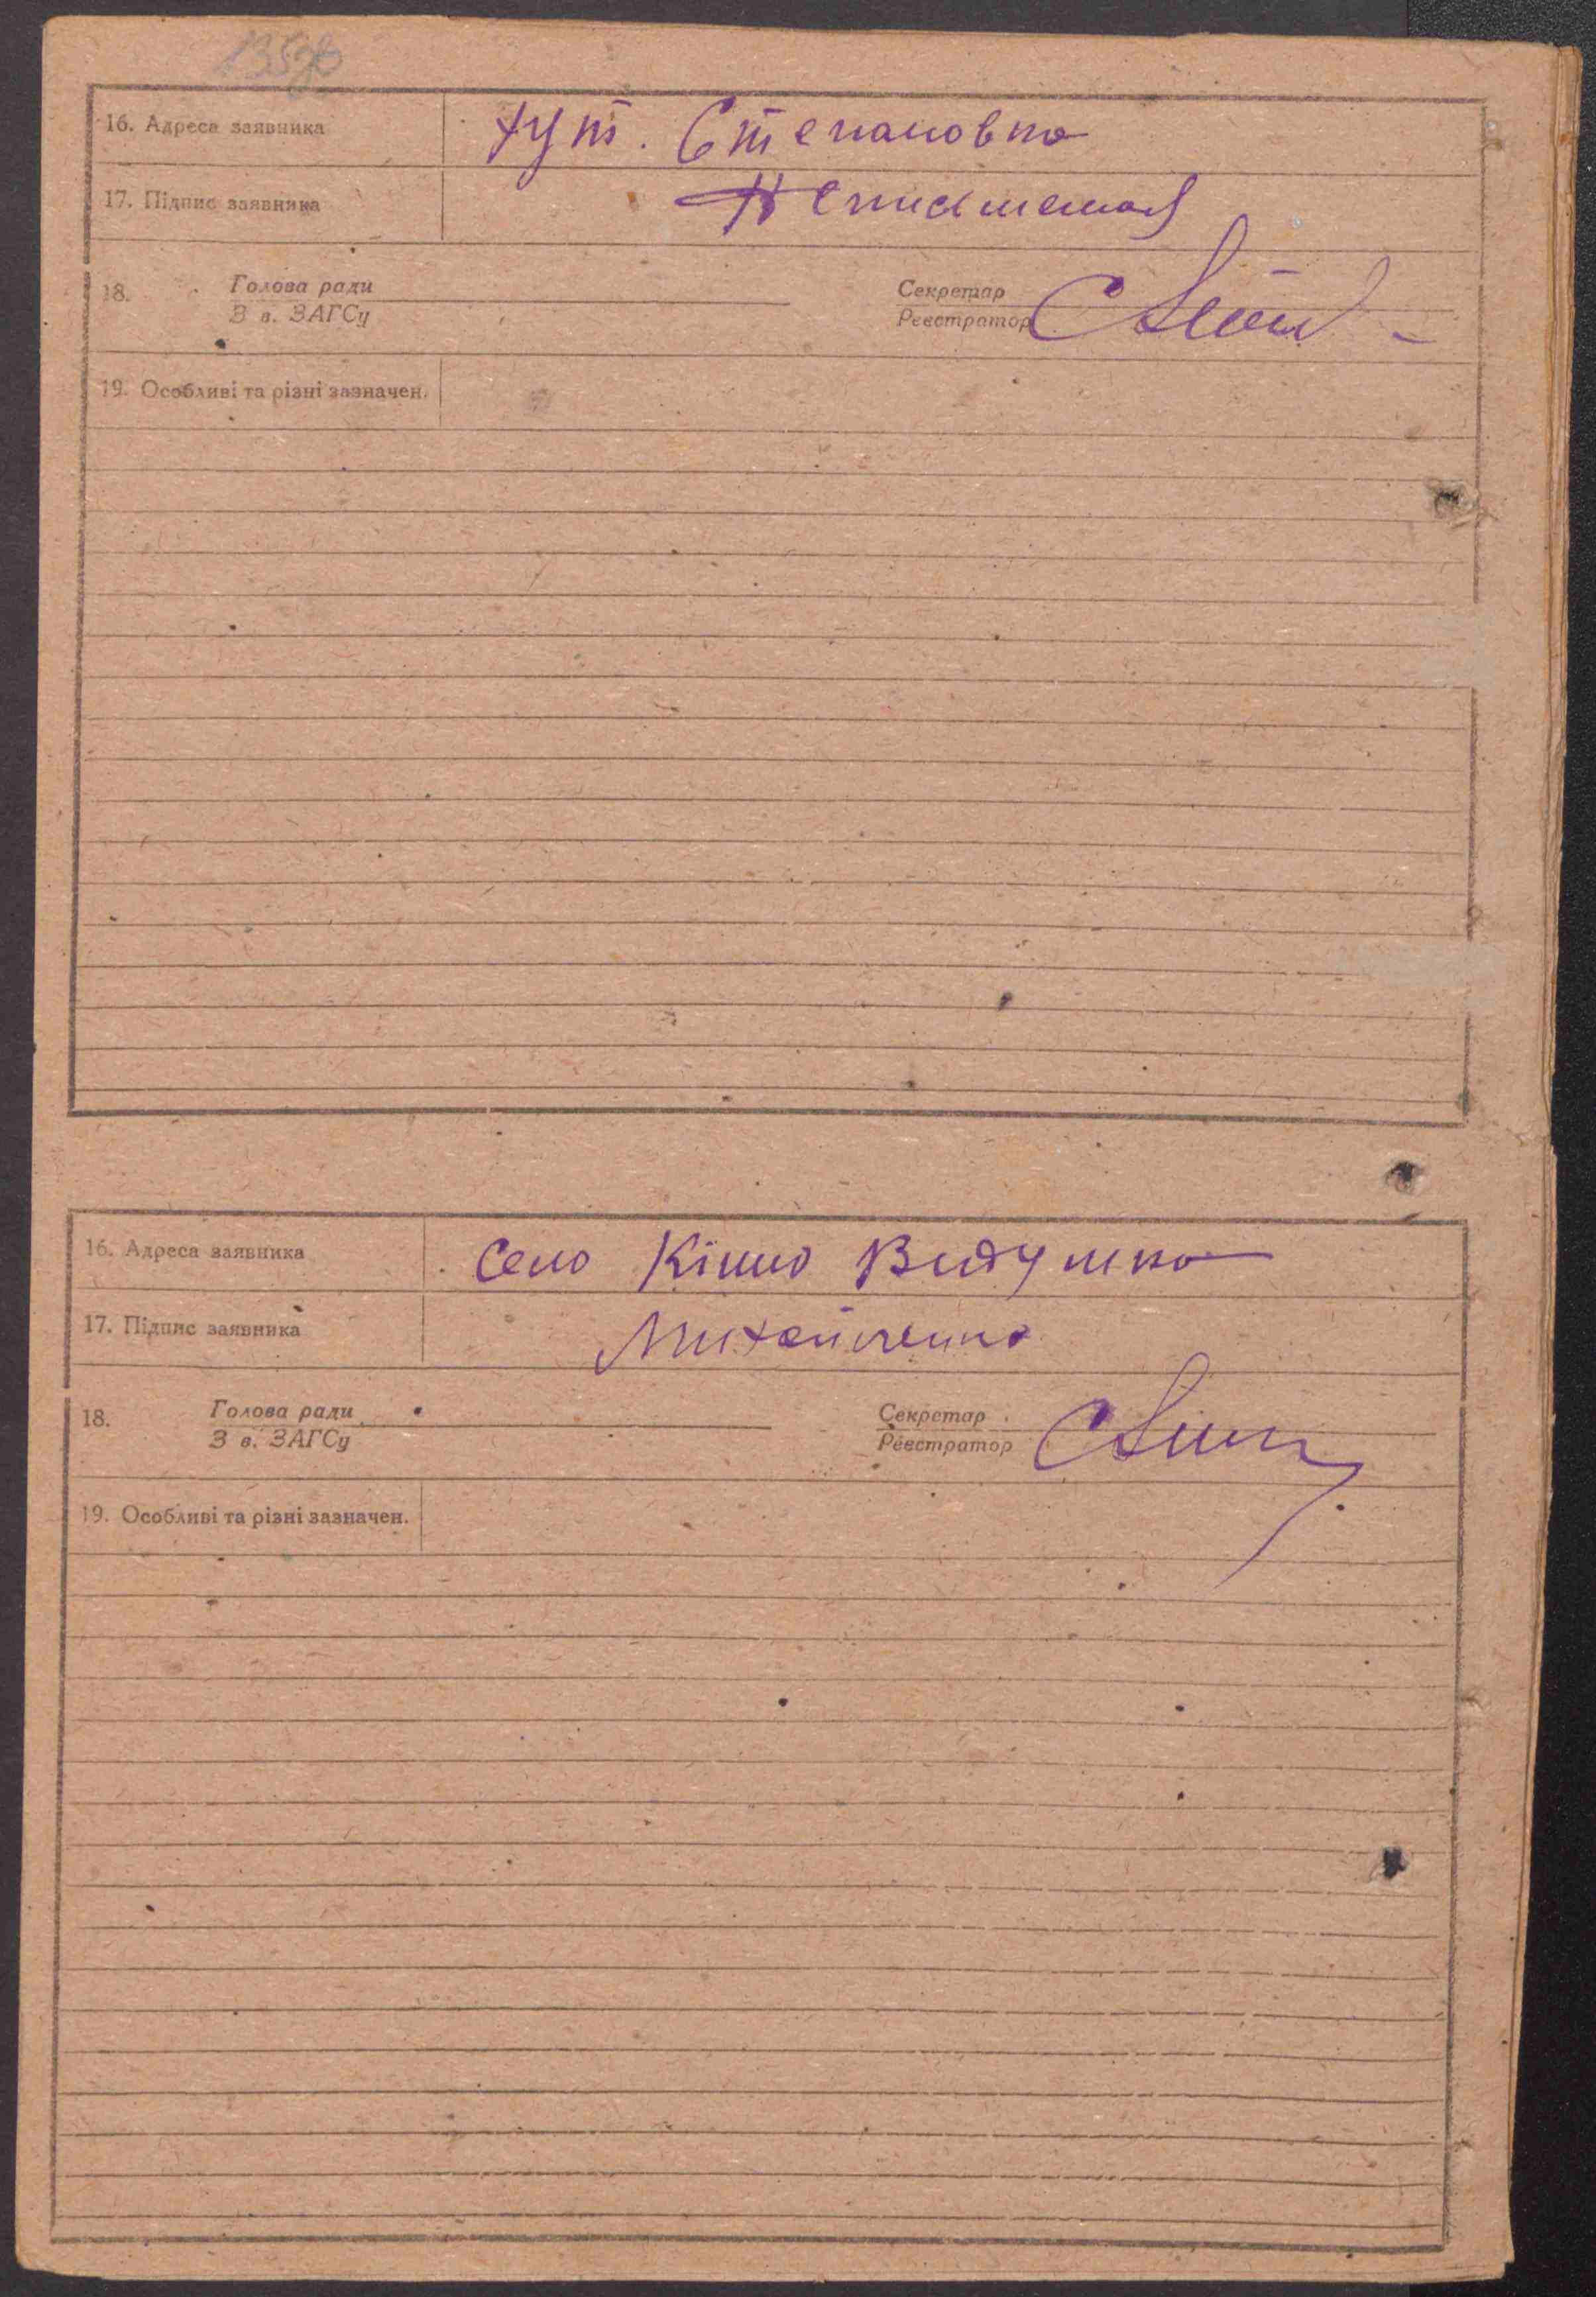 135зв
16. Адреса заявника хут. Степановка
17. Підпис заявника Неписменная
18. Голова ради Секретар
З в. ЗАГСу Реєстратор
19. Особливі та різні зазначен.
16. Адреса заявника Село Кінно Видумка
17. Підпис заявника Михайленко
18. Голова ради Секретар
З в. ЗАГСу Реєстратор
19. Особливі та різні зазначен.